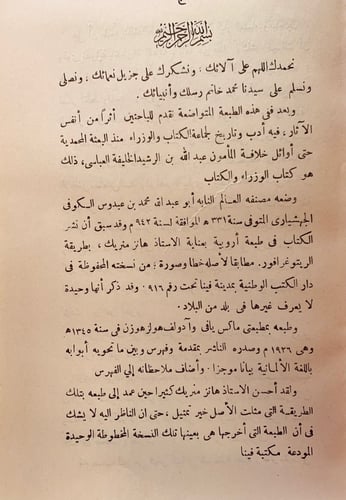 ج
بسم الله الرحمن الرحيم
نحمدك اللهم على آلائك، ونشكرك على جزيل نعمائك، ونصلى
ونسلم على سيدنا محمد خاتم رسلك وأنبيائك.
وبعد ففى هذه الطبعة المتواضعة نقدم للباحثين أثرا من أنفس
الآثار، فيه أدب وتاريخ لجماعة الكتاب والوزراء منذ البعثة المحمدية
حتى أوائل خلافة المأمون عبد الله بن الرشيد الخليفة العباسى، ذلك
هو كتاب الوزراء والكتاب
وضعه مصنفه العالم النابه أبو عبد الله محمد بن عبدوس الكوفى
الجهشيارى المتوفى سنة ٣٣١ ه الموافقة لسنة ٩٤٢ م وقد سبق أن نشر
الكتاب فى طبعة أروبية بعناية الاستاذ هانز منريك، بطريقة
الريتوغرافور. مطابقا لأصله خطا وصورة: من نسخته المحفوظة فى
دار الكتب الوطنية بمدينة فينا تحت رقم ٩١٦ وقد ذكر أنها وحيدة
لا يعرف غيرها فى بلد من البلاد.
وطبعه بمطبعتى ماكس يافى وآدولف هولزهوزن فى سنة ١٣٤٥ ه
وهى ١٩٢٦ م وصدره الناشر بمقدمة وفهرس وبين ما تحويه أبوابه
باللغة الألمانية بيانا موجزا. وأضاف ملاحظاته إلى الفهرس
ولقد أحسن الاستاذ هانز منريك كثيرا حين عمد إلى طبعه بتلك
الطريقة التى مثلت الأصل خير تمثيل، حتى ان الناظر اليه لا يشك
فى أن الطبعة التى أخرجها هى بعينها تلك النسخة المخطوطة الوحيدة
المودعة مكتبة فينا